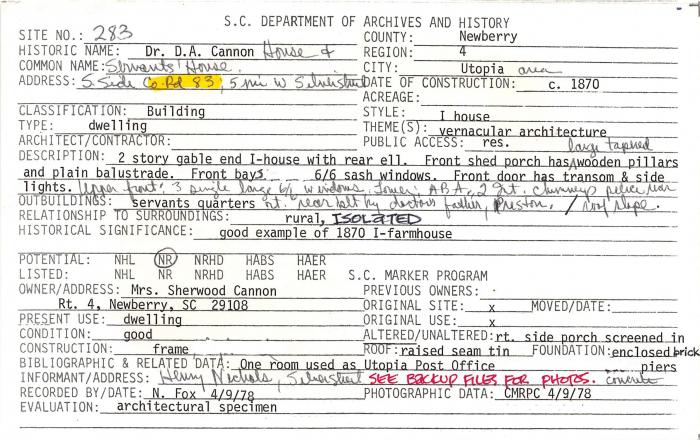 S.C. DEPARTMENT OF ARCHIVES AND HISTORY
SITE NO.: 283 COUNTY: Newberry
HISTORIC NAME: Dr. D.A. Cannon House & REGION: 4
COMMON NAME: Servants' House. CITY: Utopia area
ADDRESS: S. Side Co. Rd 83, 5 mi W Silverstreet DATE OF CONSTRUCTION: c. 1870
ACREAGE:
CLASSIFICATION: Building STYLE: I house
TYPE: dwelling THEME(S): vernacular architecture
ARCHITECT/CONTRACTOR: PUBLIC ACCESS: res. large tapered
DESCRIPTION: 2 story gable end I-house with rear ell. Front shed porch has wooden pillars
and plain balustrade. Front bays 6/6 sash windows. Front door has transom & side
lights. Upper front: 3 single large 6/6 windows, lower: ABA, 2 int. chimneys rear
OUTBUILDINGS: servants quarters rt. rear blt by doctors father, Preston. / roof slope.
RELATIONSHIP TO SURROUNDINGS: rural, ISOLATED
HISTORICAL SIGNIFICANCE: good example of 1870 I-farmhouse
POTENTIAL: NHL NR NRHD HABS HAER
LISTED: NHL NR NRHD HABS HAER S.C. MARKER PROGRAM
OWNER/ADDRESS: Mrs. Sherwood Cannon PREVIOUS OWNERS:
Rt. 4, Newberry, SC 29108 ORIGINAL SITE: x MOVED/DATE:
PRESENT USE: dwelling ORIGINAL USE: x
CONDITION: good ALTERED/UNALTERED: rt. side porch screened in
CONSTRUCTION: frame ROOF: raised seam tin FOUNDATION: enclosed brick
BIBLIOGRAPHIC & RELATED DATA: One room used as Utopia Post Office piers
INFORMANT/ADDRESS: Henry Nichols, Silverstreet SEE BACKUP FILES FOR PHOTOS. concrete
RECORDED BY/DATE: N. Fox 4/9/78 PHOTOGRAPHIC DATA: CMRPC 4/9/78
EVALUATION: architectural specimen